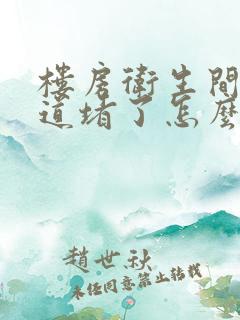 樓房衛生間
道堵了怎麽
趙世秋
未经同意禁止转载